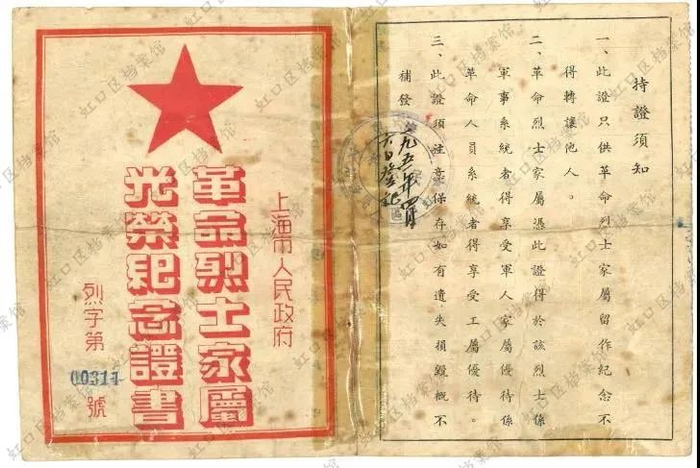 持證須知
一、此證只供革命烈士家屬留作紀念不
得轉讓他人。
二、革命烈士家屬憑此證得於該烈士係
軍事系統者得享受軍人家屬優待係
革命人員系統者得享受工屬優待。
三、此證須注意保存如有遺失損毀概不
補發
一九五一年四月
六日登記
上海市人民政府
革命烈士家屬
光榮紀念證書
烈字第
號
虹口区档案馆